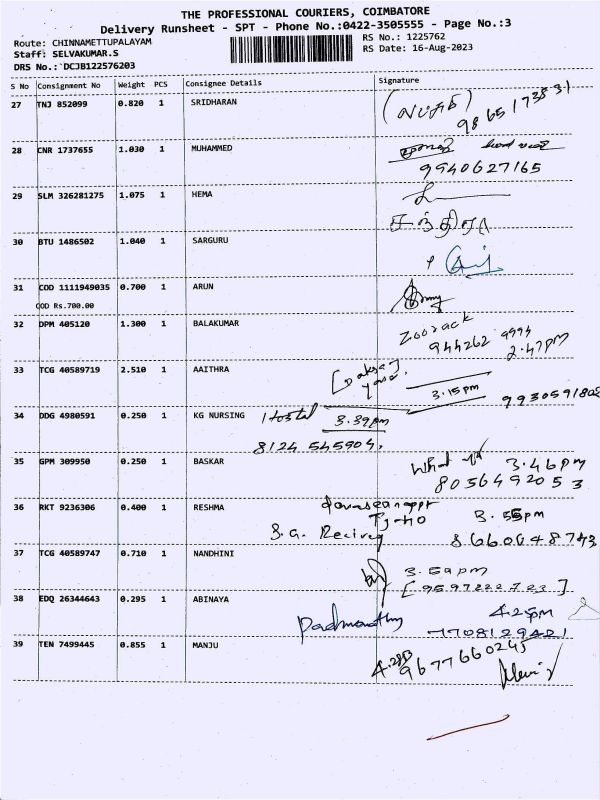 THE PROFESSIONAL COURIERS, COIMBATORE
Delivery Runsheet - SPT - Phone No.:0422-3505555 - Page No.:3
Route: CHINNAMETTUPALAYAM
RS No.: 1225762
Staff: SELVAKUMAR.S
RS Date: 16-Aug-2023
DRS No.: DCJB122576203
S No Consignment No Weight PCS Consignee Details Signature
27 TNJ 852099 0.820 1 SRIDHARAN
28 CNR 1737655 1.030 1 MUHAMMED
9940627165
29 SLM 326281275 1.075 1 HEMA
சந்திரா
30 BTU 1486502 1.040 1 SARGURU
31 COD 1111949035 0.700 1 ARUN
COD Rs.700.00
32 DPM 405120 1.300 1 BALAKUMAR
944262 9994
2.47pm
33 TCG 40589719 2.510 1 AAITHRA
3.15pm
34 DDG 4980591 0.250 1 KG NURSING Hostal 3.39pm
8124 545904.
35 GPM 309950 0.250 1 BASKAR
3.46pm
8056492053
36 RKT 9236306 0.400 1 RESHMA
3.55pm
8660648743
37 TCG 40589747 0.710 1 NANDHINI
3.59pm
[9597222723]
38 EDQ 26344643 0.295 1 ABINAYA
4.25pm
7708129421
39 TEN 7499445 0.855 1 MANJU
9677660245